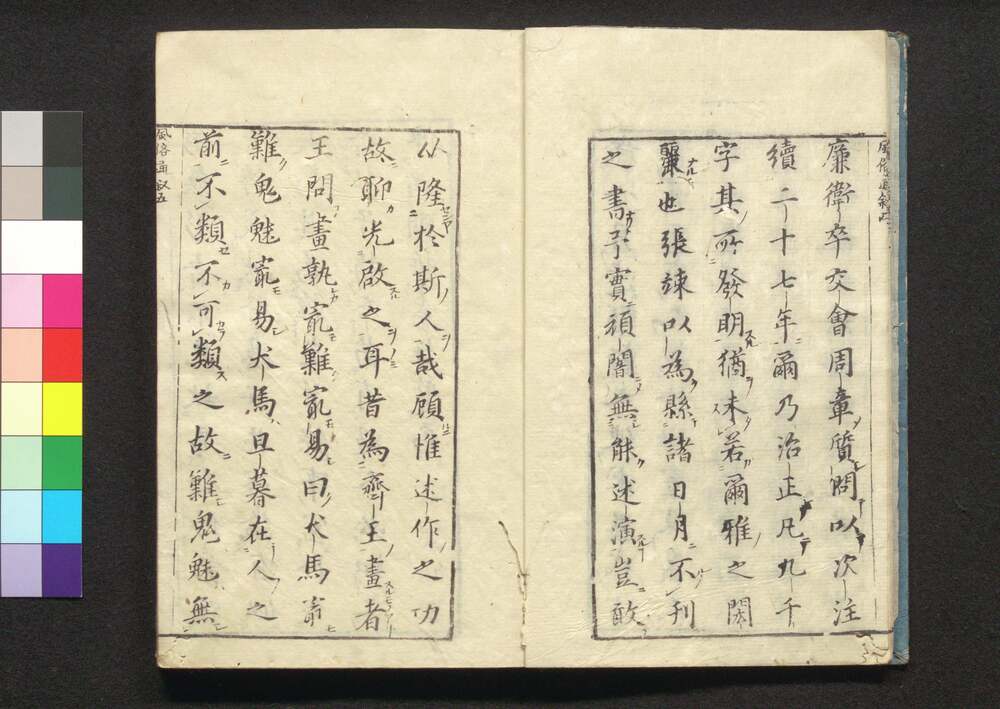 風俗通敘四
廉衛卒交會周章質問以次注
續二十七年爾乃治正凡九千
字其所發明猶未若爾雅之閎
麗也張竦以為縣諸日月不刊
之書予實頑闇無能述演豈敢
从隆於斯人哉顧惟述作之功
故聊光啟之耳昔為齊王畫者
王問畫孰㝡難㝡易曰犬馬㝡
難鬼魅㝡易犬馬旦暮在人之
前不類不可類之故難鬼魅無
風俗通叙五